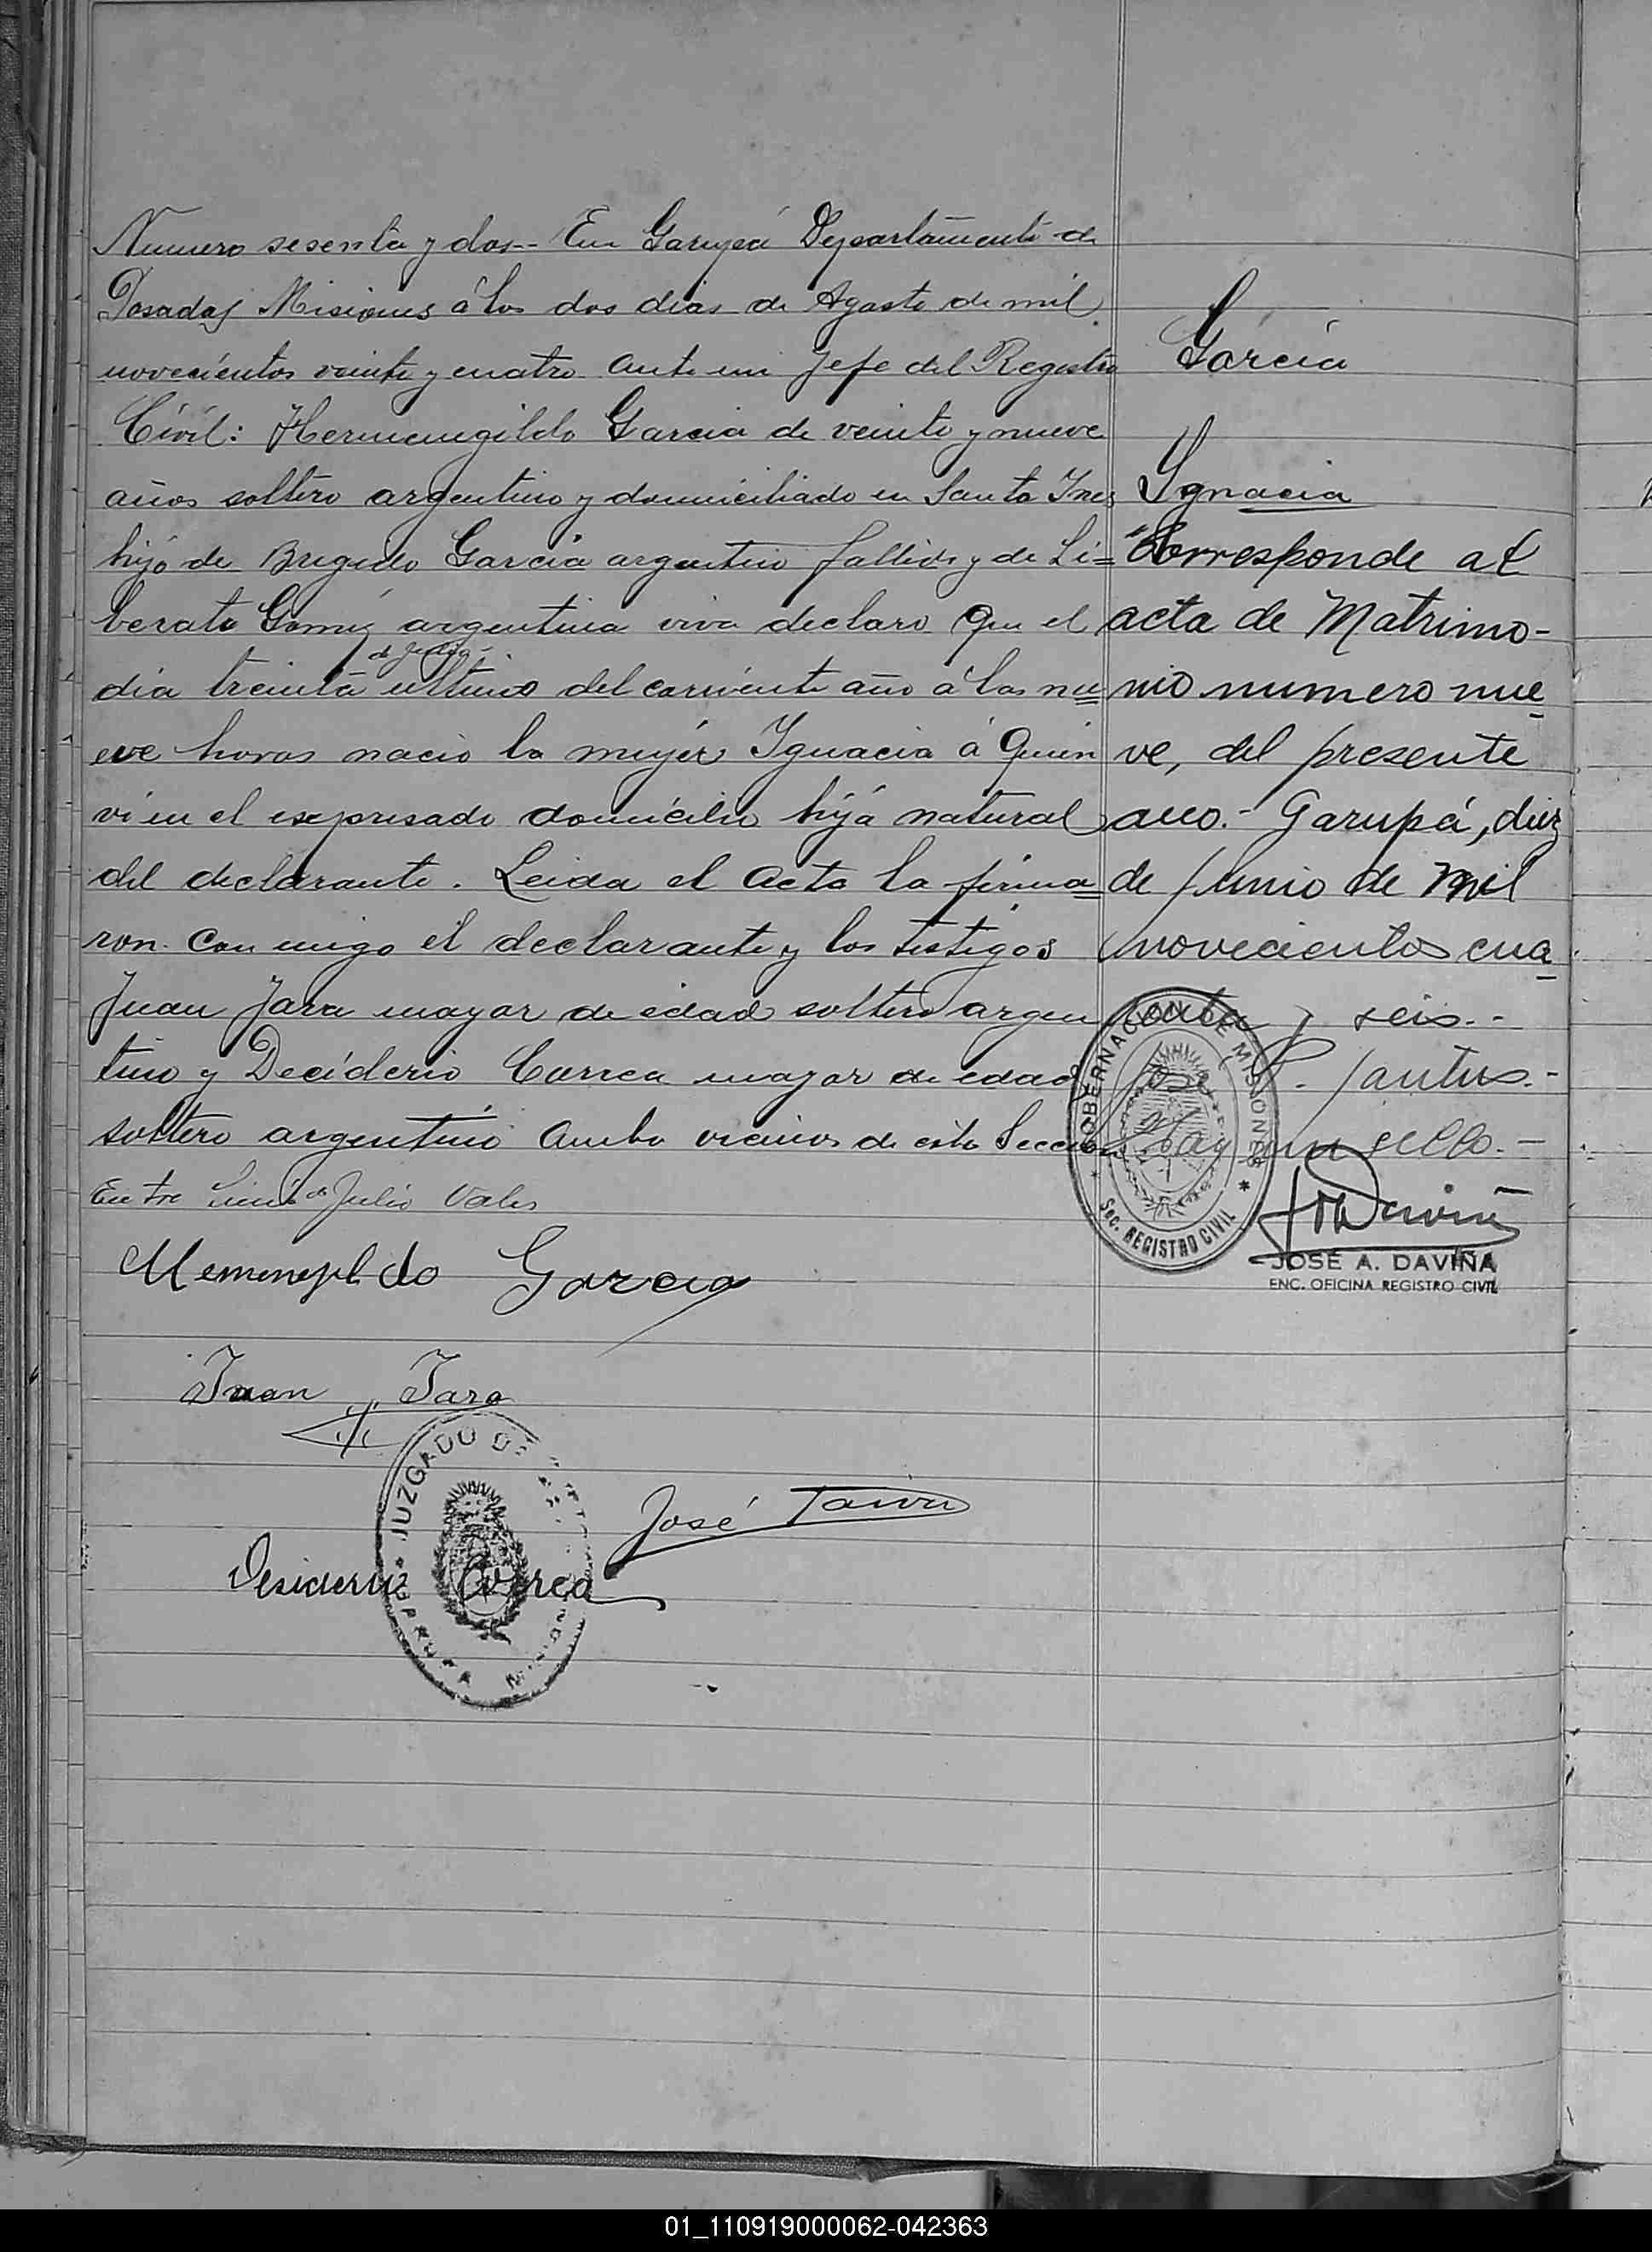 Numero sesenta y dos- En Garupá Departamento de
Posadas Misiones á los dos dias de Agosto de mil
novecientos veinte y cuatro ante mi Jefe del Registro
Civil: Hermenegildo Garcia de veinte y nueve
años soltero argentino y domiciliado en Santa Ines
hijo de Brigido Garcia argentino fallido y de Li=
berata Gomez argentina viva declaro Que el
de Julio
dia treinta ultimo del corriente año á las nu
eve horas nacio la mujer Ignacia á Quien
vi en el expresado domicilio hija natural
del declarante. Leida el Acta la firma=
ron con migo el declarante y los testigos
Juan Jara mayor de edad soltero argen
tino y Deciderio Correa mayor de edad
soltero argentino Ambo vecinos de esta Seccion
Entre linea de Julio Vale
Hemenegildo Garcia
Juan Jara
José
Desiderio Correa
JUZGADO DE
Garcia
Ignacia
"Corresponde al
acta de Matrimo-
nio numero nue
ve, del presente
año.- Garupá, diez
de Junio de mil
novecientos cua
renta y seis.-
José P. Santus.-
Hay un sello.-
GOBERNACION DE MISIONES
Sec. REGISTRO CIVIL
JOSÉ A. DAVIÑA
ENC. OFICINA REGISTRO CIVIL
01_110919000062-042363